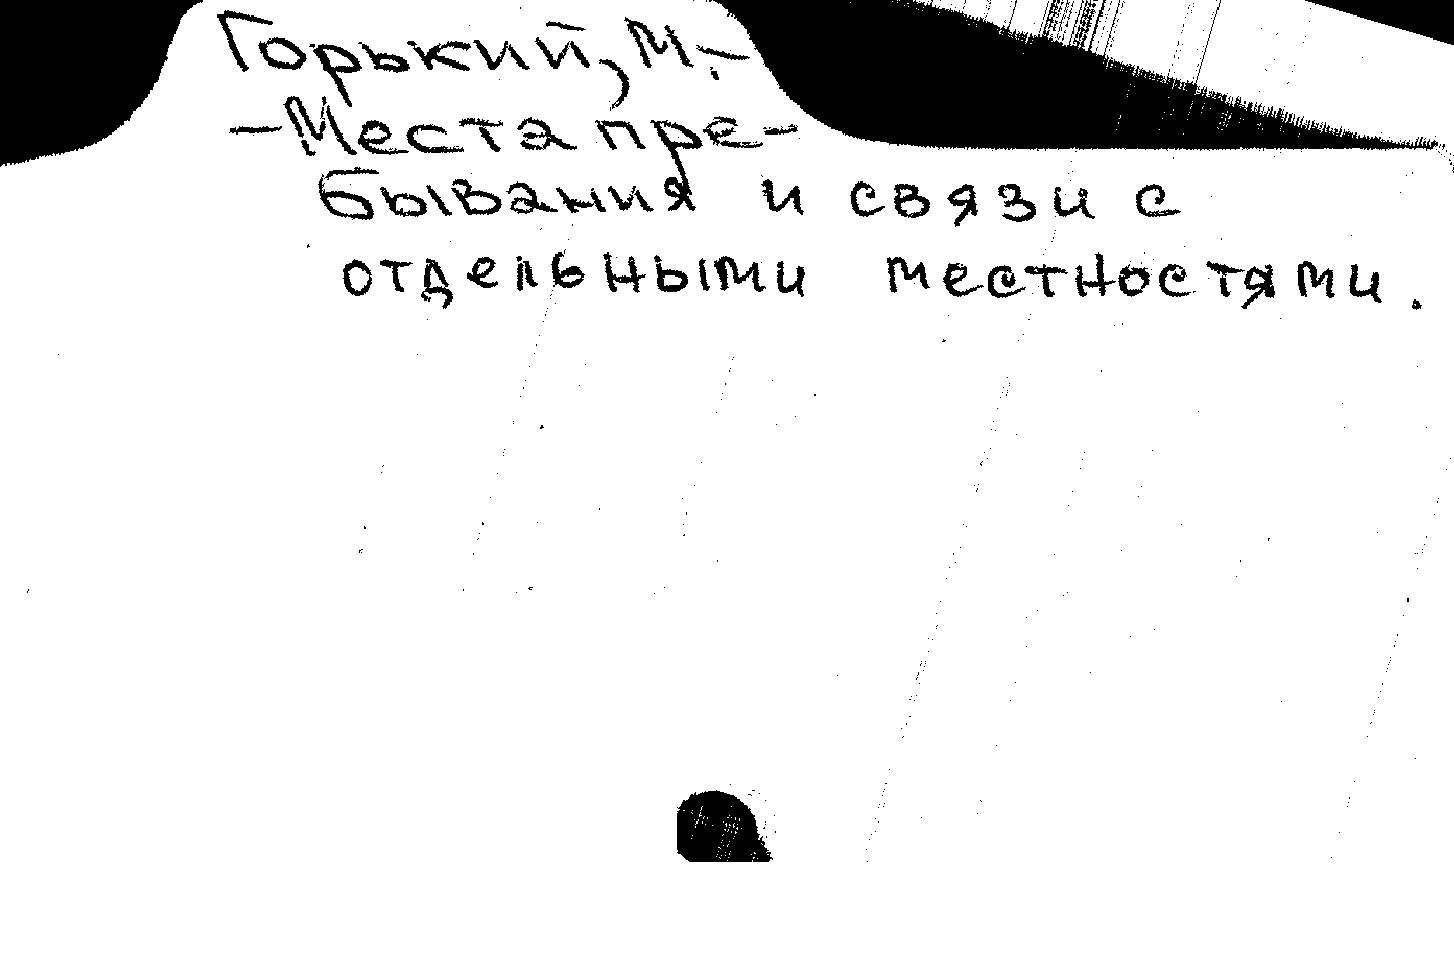 Горький, М.–
–Места пре-
бывания и связи с
отдельными местностями.